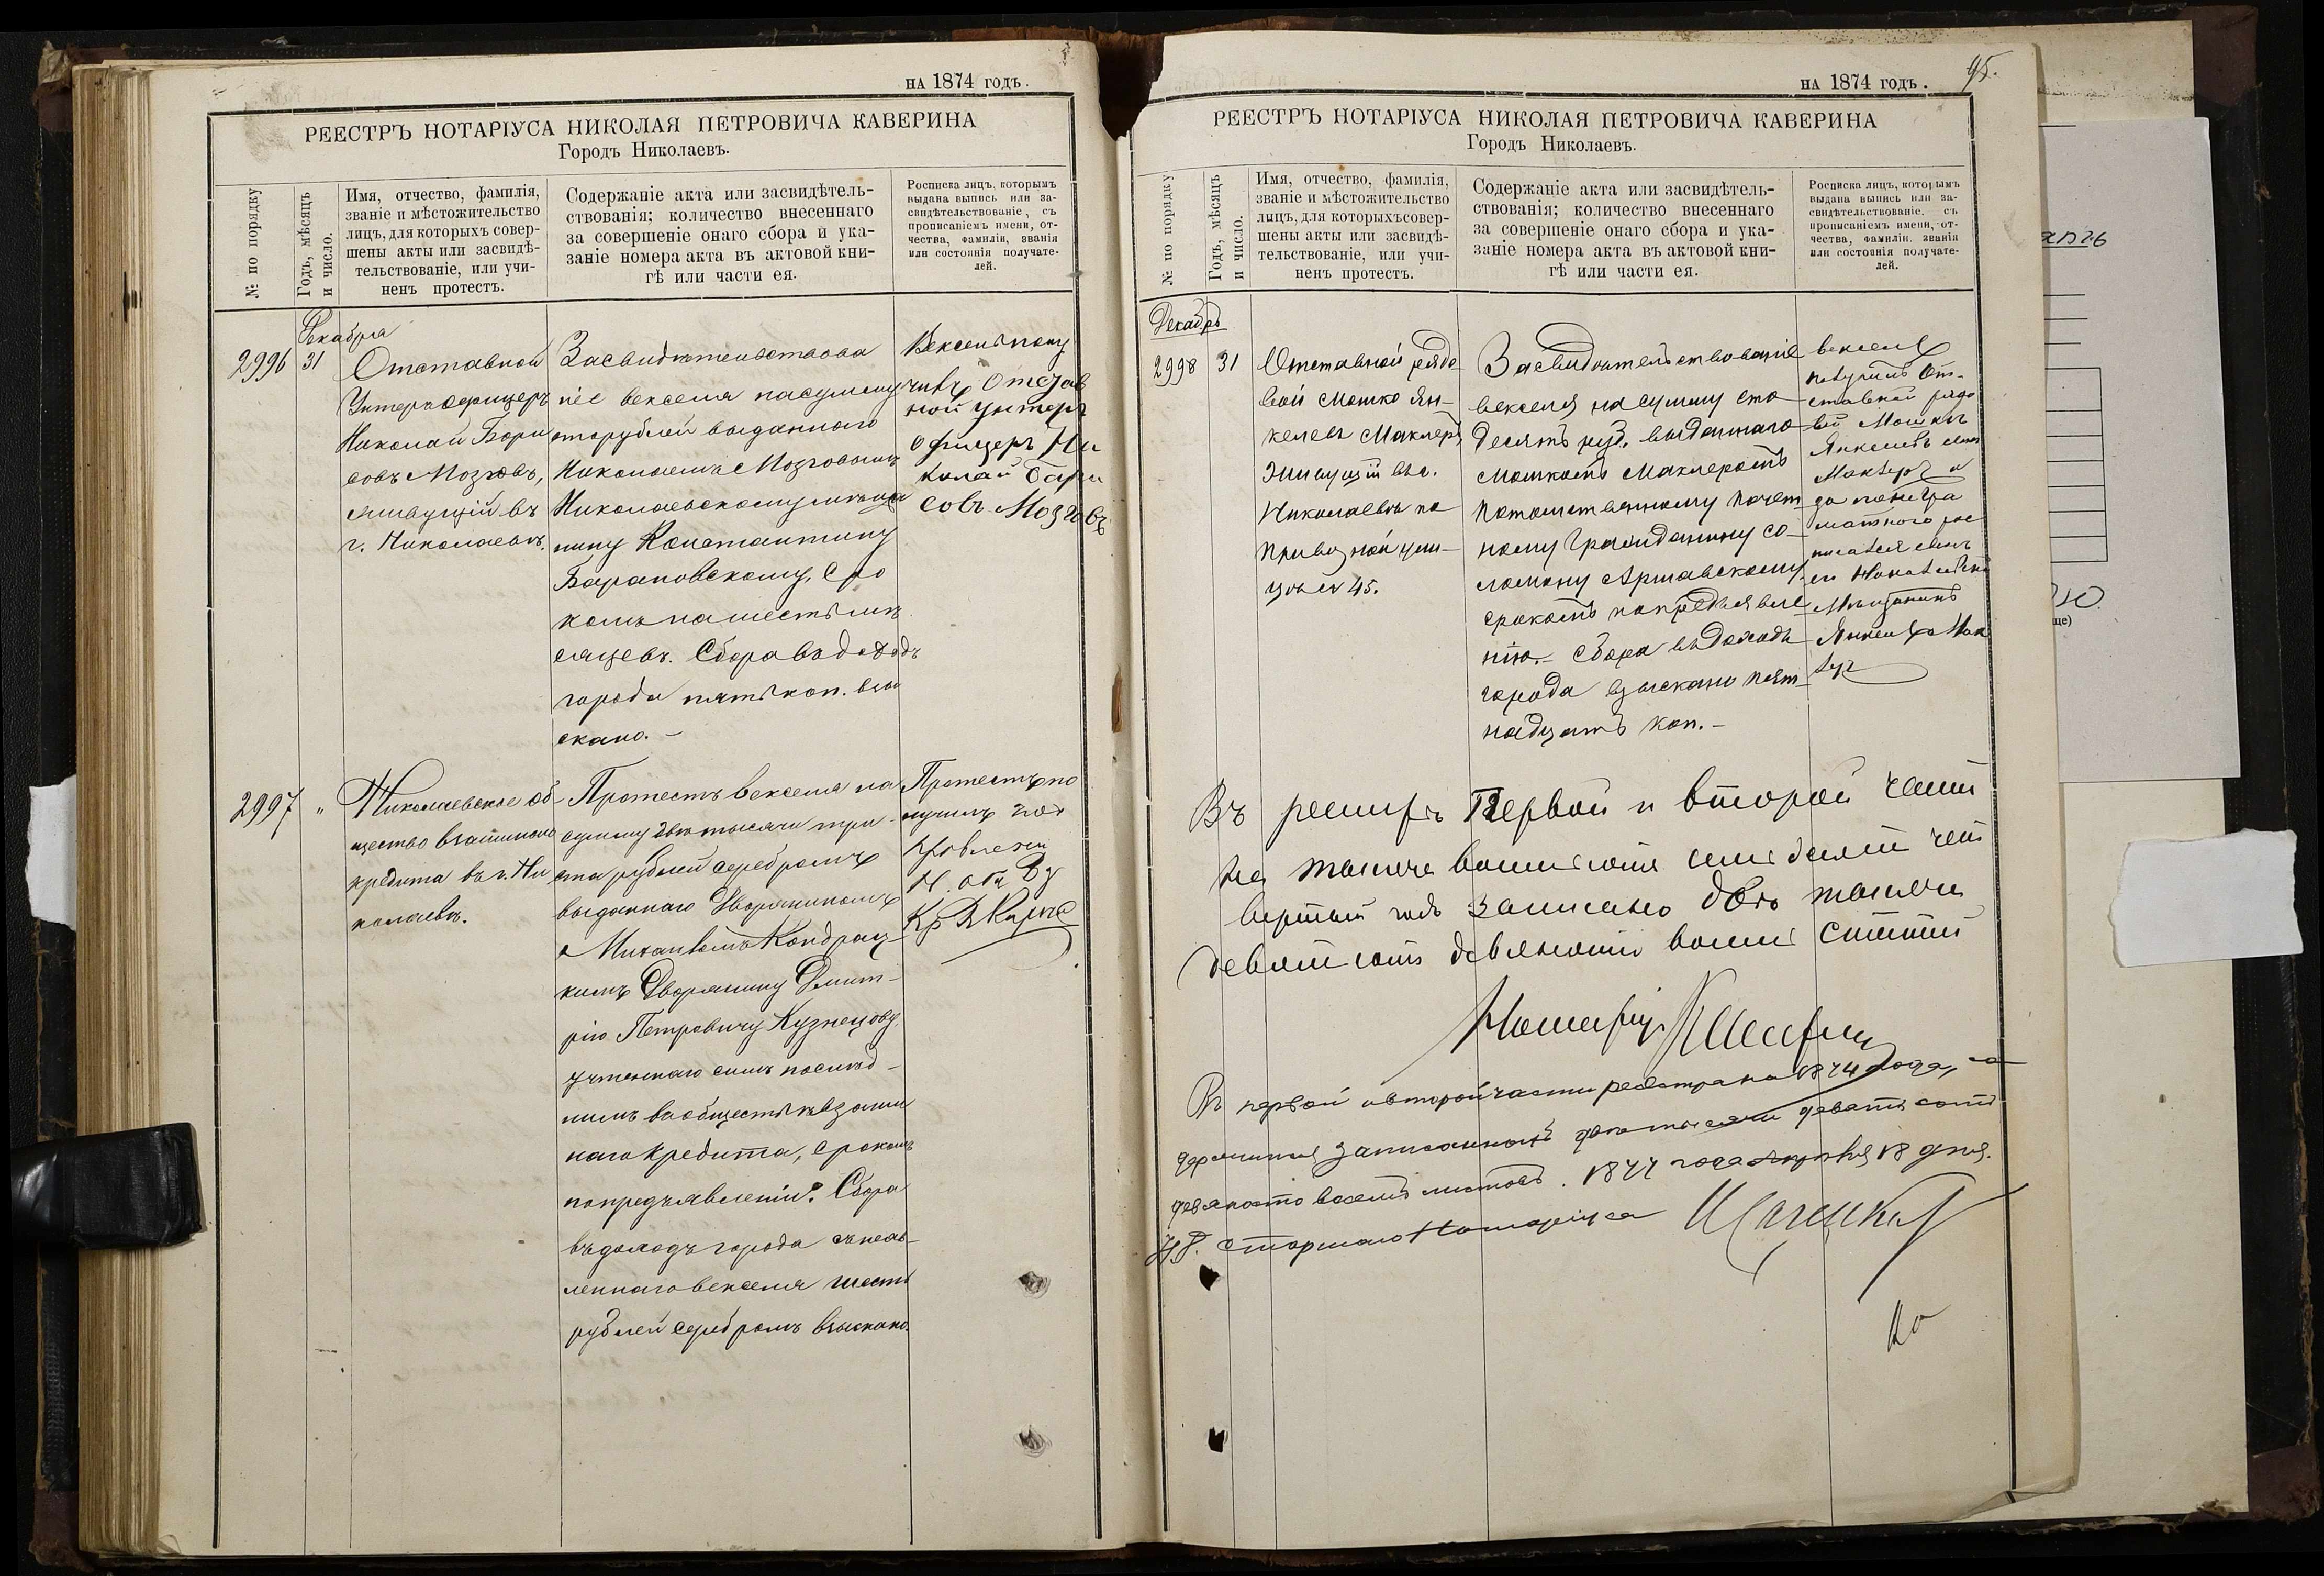 НА 1874 ГОДЪ.
РЕЕСТРЪ НОТАРІУСА НИКОЛАЯ ПЕТРОВИЧА КАВЕРИНА
Городъ Николаевъ.
№ по порядку
Годъ, мѣсяцъ
и число.
Имя, отчество, фамилія,
званіе и мѣстожительство
лицъ, для которыхъ совер-
шены акты или засвидѣ-
тельствованіе, или учи-
ненъ протестъ.
Содержаніе акта или засвидѣтель-
ствованія; количество внесеннаго
за совершеніе онаго сбора и ука-
заніе номера акта въ актовой кни-
гѣ или части ея.
Росписка лицъ, которымъ
выдана выпись или за-
свидѣтельствованіе, съ
прописаніемъ имени, от-
чества, фамиліи, званія
или состоянія получате-
лей.
Декабря
2996
31
Отставной
Унтеръ офицеръ
Николай Бори
совъ Мозговъ,
живущій въ
г. Николаевѣ.
Засвидѣтельствова
ніе векселя на сумму
сто рублей выданнаго
Николаемъ Мозговымъ
Николаевскому мѣща
нину Константину
Барановскому, сро
комъ на шесть мѣ
сяцевъ. Сбора въ доходъ
города пять коп. взы
скано. –
Вексель полу
чилъ Отстав
ной унтеръ
офицеръ Ни
колай Бари
совъ Мозговъ
2997
"
Николаевское об-
щество взаимнаго
кредита въ г. Ни
колаевѣ.
Протестъ векселя на
сумму двѣ тысячи три-
ста рублей серебромъ
выданнаго Дворяниномъ
Михаиломъ Кондрац-
кимъ Дворянину Дмит-
рію Петровичу Кузнецову,
учтеннаго симъ послѣд-
нимъ въ обществѣ взаим
наго кредита, срокомъ
по предъявленіи. Сбора
въ доходъ города съ
леннаго векселя шесть
рублей серебромъ взыскано.
Протестъ по
лучилъ
Правленія
Н. Об. Вз
Кр.
НА 1874 ГОДЪ.
95.
РЕЕСТРЪ НОТАРІУСА НИКОЛАЯ ПЕТРОВИЧА КАВЕРИНА
Городъ Николаевъ.
№ по порядку
Годъ, мѣсяцъ
и число.
Имя, отчество, фамилія,
званіе и мѣстожительство
лицъ, для которыхъ совер-
шены акты или засвидѣ-
тельствованіе, или учи-
ненъ протестъ.
Содержаніе акта или засвидѣтель-
ствованія; количество внесеннаго
за совершеніе онаго сбора и ука-
заніе номера акта въ актовой кни-
гѣ или части ея.
Росписка лицъ, которымъ
выдана выпись или за-
свидѣтельствованіе, съ
прописаніемъ имени, от-
чества, фамиліи, званія
или состоянія получате-
лей.
Декабрь
2998
31
Отставной рядо
вой Мошко Ян-
келевъ Маклеръ
Живущій въ г.
Николаевѣ по
Привозной ули-
цѣ № 45.
Засвидѣтельствованіе
векселя на сумму сто
десять руб. выданнаго
Мошкомъ Маклеромъ
Потомственному Почет
ному Гражданину Со-
ломону Аршавскому,
срокомъ по предъявле
нію. – Сбора въ Доходъ
города взыскано пят-
надцать коп. –
вексель
получилъ От-
ставной рядо
вой Мошко
Янкелевъ
Маклеръ а
за неигра
матного рос
писался сынъ
его Николаевскій
Мѣщанинъ
Янкель Мак
леръ
Въ реестръ Первой и второй части
на тысяча восемьсотъ семьдесятъ чет
вертый годъ записано двѣ тысячи
девятьсотъ девяносто восемь статей
Нотаріусъ Каверинъ
Въ первой и второй части реестра на 1874 года, со
держится записанныхъ двѣ тысячи девятьсотъ
девяносто восемь листовъ. 1877 года Апрѣля 18 дня.
И.Д. старшаго Нотаріуса